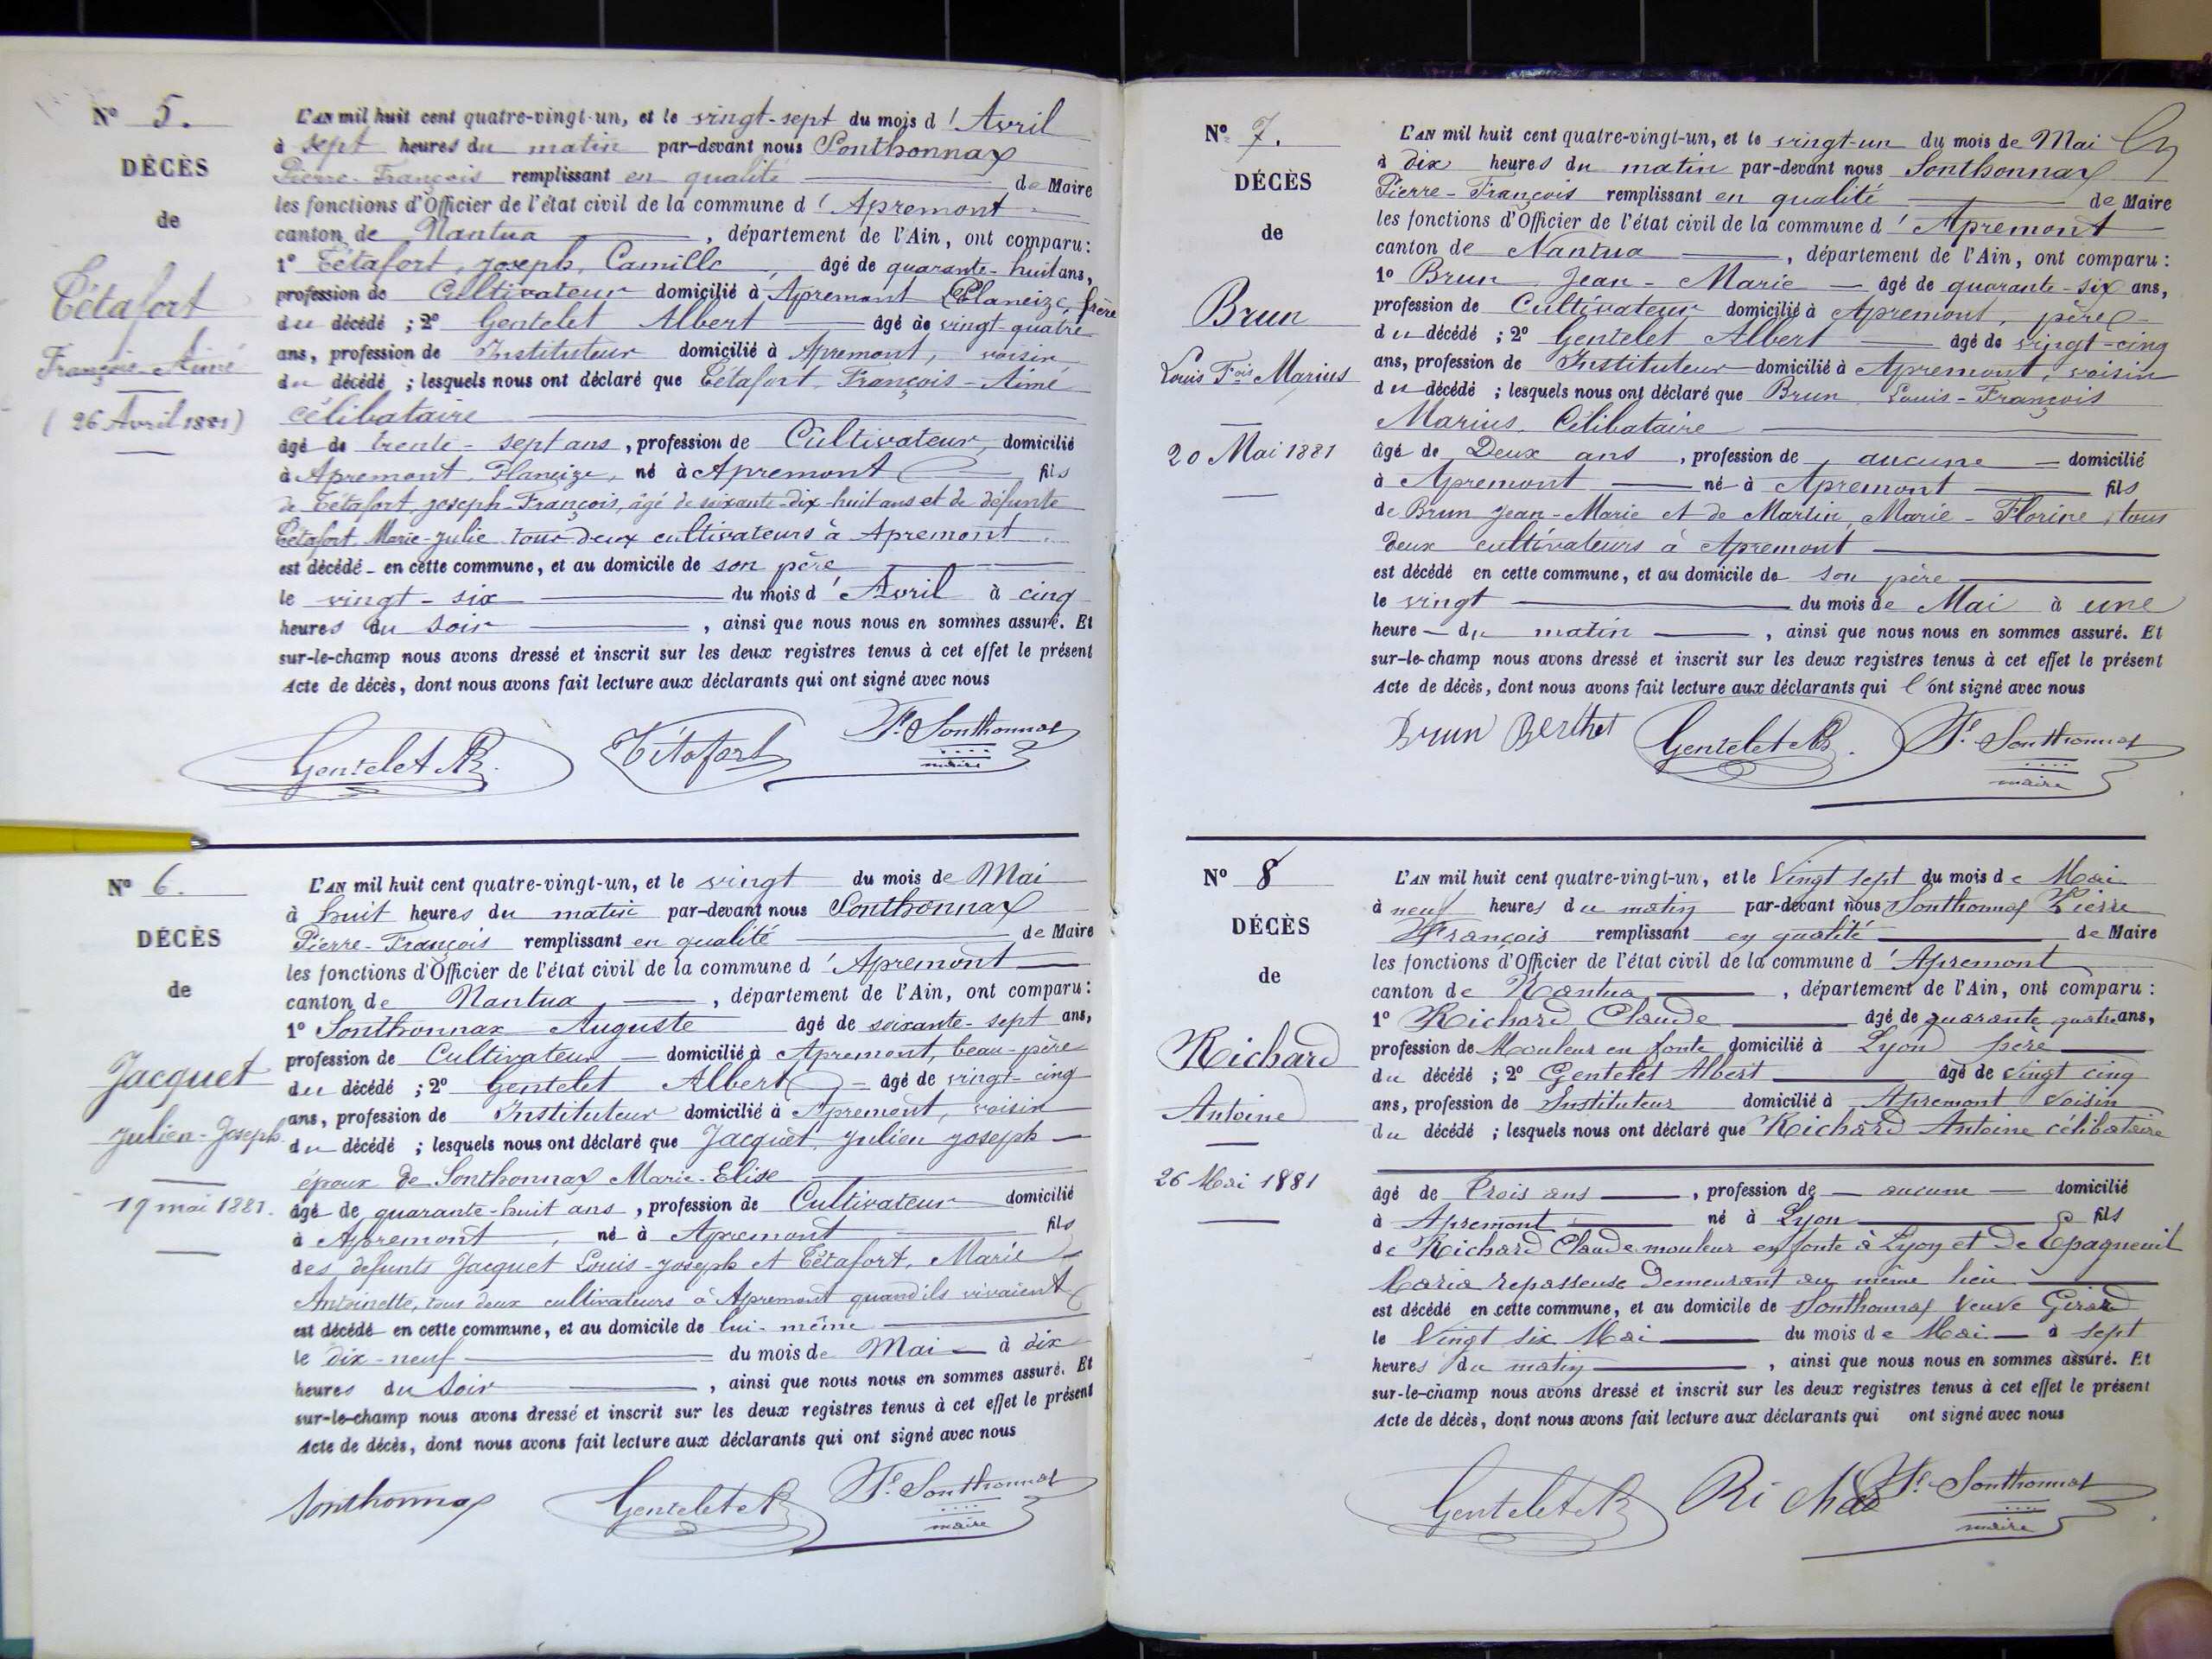 N° 5.
DÉCÈS
de
Tétafort
François-Aimé
(26 Avril 1881)
L'AN mil huit cent quatre-vingt-un, et le vingt-sept du mois d'Avril
à sept heures du matin par-devant nous Sonthonnax
Pierre-François remplissant en qualité de Maire
les fonctions d'Officier de l'état civil de la commune d'Apremont
canton de Nantua, département de l'Ain, ont comparu :
1° Tétafort, joseph, Camille, âgé de quarante-huit ans,
profession de Cultivateur domicilié à Apremont Planeize, frère
du décédé ; 2° Gentelet Albert âgé de vingt-quatre
ans, profession de Instituteur domicilié à Apremont, voisin
du décédé ; lesquels nous ont déclaré que Tétafort, François-Aimé
célibataire
âgé de trente-sept ans, profession de Cultivateur, domicilié
à Apremont, Planeize, né à Apremont fils
de Tétafort, joseph-François, âgé de soixante-dix-huit ans et de défunte
Tétafort, Marie-julie tous deux cultivateurs à Apremont
est décédé en cette commune, et au domicile de son père
le vingt-six du mois d'Avril à cinq
heures du soir, ainsi que nous nous en sommes assuré. Et
sur-le-champ nous avons dressé et inscrit sur les deux registres tenus à cet effet le présent
Acte de décès, dont nous avons fait lecture aux déclarants qui ont signé avec nous
Gentelet Ab. Tétafort Fs. Sonthonnax
maire
N° 6.
DÉCÈS
de
Jacquet
julien-Joseph
19 mai 1881.
L'AN mil huit cent quatre-vingt-un, et le vingt du mois de Mai
à huit heures du matin par-devant nous Sonthonnax
Pierre-François remplissant en qualité de Maire
les fonctions d'Officier de l'état civil de la commune d'Apremont
canton de Nantua, département de l'Ain, ont comparu :
1° Sonthonnax Auguste âgé de soixante-sept ans,
profession de Cultivateur domicilié à Apremont, beau-père
du décédé ; 2° Gentelet Albert âgé de vingt-cinq
ans, profession de Instituteur domicilié à Apremont, voisin
du décédé ; lesquels nous ont déclaré que Jacquet, julien joseph
époux de Sonthonnax Marie-Elise
âgé de quarante-huit ans, profession de Cultivateur domicilié
à Apremont, né à Apremont fils
des défunts Jacquet Louis-joseph et Tétafort, Marie
Antoinette, tous deux cultivateurs à Apremont quand ils vivaient
est décédé en cette commune, et au domicile de lui-même
le dix-neuf du mois de Mai à dix
heures du soir, ainsi que nous nous en sommes assuré. Et
sur-le-champ nous avons dressé et inscrit sur les deux registres tenus à cet effet le présent
Acte de décès, dont nous avons fait lecture aux déclarants qui ont signé avec nous
Sonthonnax Gentelet Ab Fs. Sonthonnax
maire
N° 7.
DÉCÈS
de
Brun
Louis Fois Marius
20 Mai 1881
L'AN mil huit cent quatre-vingt-un, et le vingt-un du mois de Mai
à dix heures du matin par-devant nous Sonthonnax
Pierre-François remplissant en qualité de Maire
les fonctions d'Officier de l'état civil de la commune d'Apremont
canton de Nantua, département de l'Ain, ont comparu :
1° Brun Jean-Marie âgé de quarante-six ans,
profession de Cultivateur domicilié à Apremont, père
du décédé ; 2° Gentelet Albert âgé de vingt-cinq
ans, profession de Instituteur domicilié à Apremont, voisin
du décédé ; lesquels nous ont déclaré que Brun Louis-François
Marius, Célibataire
âgé de Deux ans, profession de aucune domicilié
à Apremont né à Apremont fils
de Brun jean-Marie et de Martin, Marie-Florine, tous
deux cultivateurs à Apremont
est décédé en cette commune, et au domicile de son père
le vingt du mois de Mai à une
heure du matin, ainsi que nous nous en sommes assuré. Et
sur-le-champ nous avons dressé et inscrit sur les deux registres tenus à cet effet le présent
Acte de décès, dont nous avons fait lecture aux déclarants qui l'ont signé avec nous
Brun Berthet Gentelet Ab. Fs. Sonthonnax
maire
N° 8
DÉCÈS
de
Richard
Antoine
26 Mai 1881
L'AN mil huit cent quatre-vingt-un, et le Vingt sept du mois de Mai
à neuf heures du matin par-devant nous Sonthonnax Pierre
François remplissant en qualité de Maire
les fonctions d'Officier de l'état civil de la commune d'Apremont
canton de Nantua, département de l'Ain, ont comparu :
1° Richard Claude âgé de quarante quatre ans,
profession de Mouleur en fonte domicilié à Lyon père
du décédé ; 2° Gentelet Albert âgé de vingt cinq
ans, profession de Instituteur domicilié à Apremont voisin
du décédé ; lesquels nous ont déclaré que Richard Antoine célibataire
âgé de Trois ans, profession de aucune domicilié
à Apremont né à Lyon fils
de Richard Claude mouleur en fonte à Lyon et de Epagneuil
Maria repasseuse demeurant au même lieu
est décédé en cette commune, et au domicile de Sonthonnax veuve Girard
le Vingt six Mai du mois de Mai à sept
heures du matin, ainsi que nous nous en sommes assuré. Et
sur-le-champ nous avons dressé et inscrit sur les deux registres tenus à cet effet le présent
Acte de décès, dont nous avons fait lecture aux déclarants qui ont signé avec nous
Gentelet Ab Richard Fs. Sonthonnax
maire